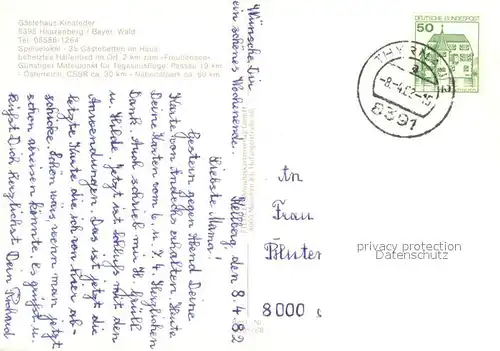 Gästehaus Kinateder
8395 Hauzenberg / Bayer. Wald
Tel. 08586-1264
Speiselokal - 25 Gästebetten im Haus
beheiztes Hallenbad im Ort 2 km zum "Freudensee"
Günstiger Mittelpunkt für Tagesausflüge: Passau 19 km
Österreich, CSSR ca. 30 km - Nationalpark ca. 60 km
Wünsche Dir
ein schönes Wochenende.
Kellberg, den 8.4.82
Liebste Mama!
Gestern gegen Abend Deine
Karte von Andechs erhalten. Heute
Deine Karten vom 6. u. 7.4. Herzlichen
Dank. Auch schrieb mir H.
u. Hilde. Jetzt ist Schluß mit den
Anwendungen. Das ist jetzt die
letzte Karte die ich von hier ab-
schicke. Schön wärs wenn man jetzt
schon abreisen könnte. Es grüßt u.
küßt Dich herzlichst Dein Richard
DEUTSCHE BUNDESPOST
50
THYRNAU
a
-8.-4.82-15
8391
An
Frau
8000
privacy protection
Datenschutz